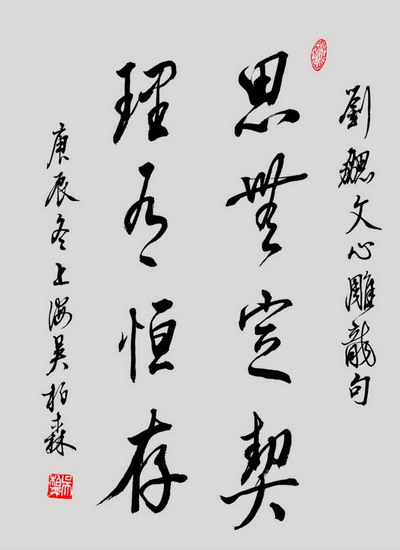 劉勰文心雕龍句
思無定契
理有恒存
庚辰冬上海吳柏森